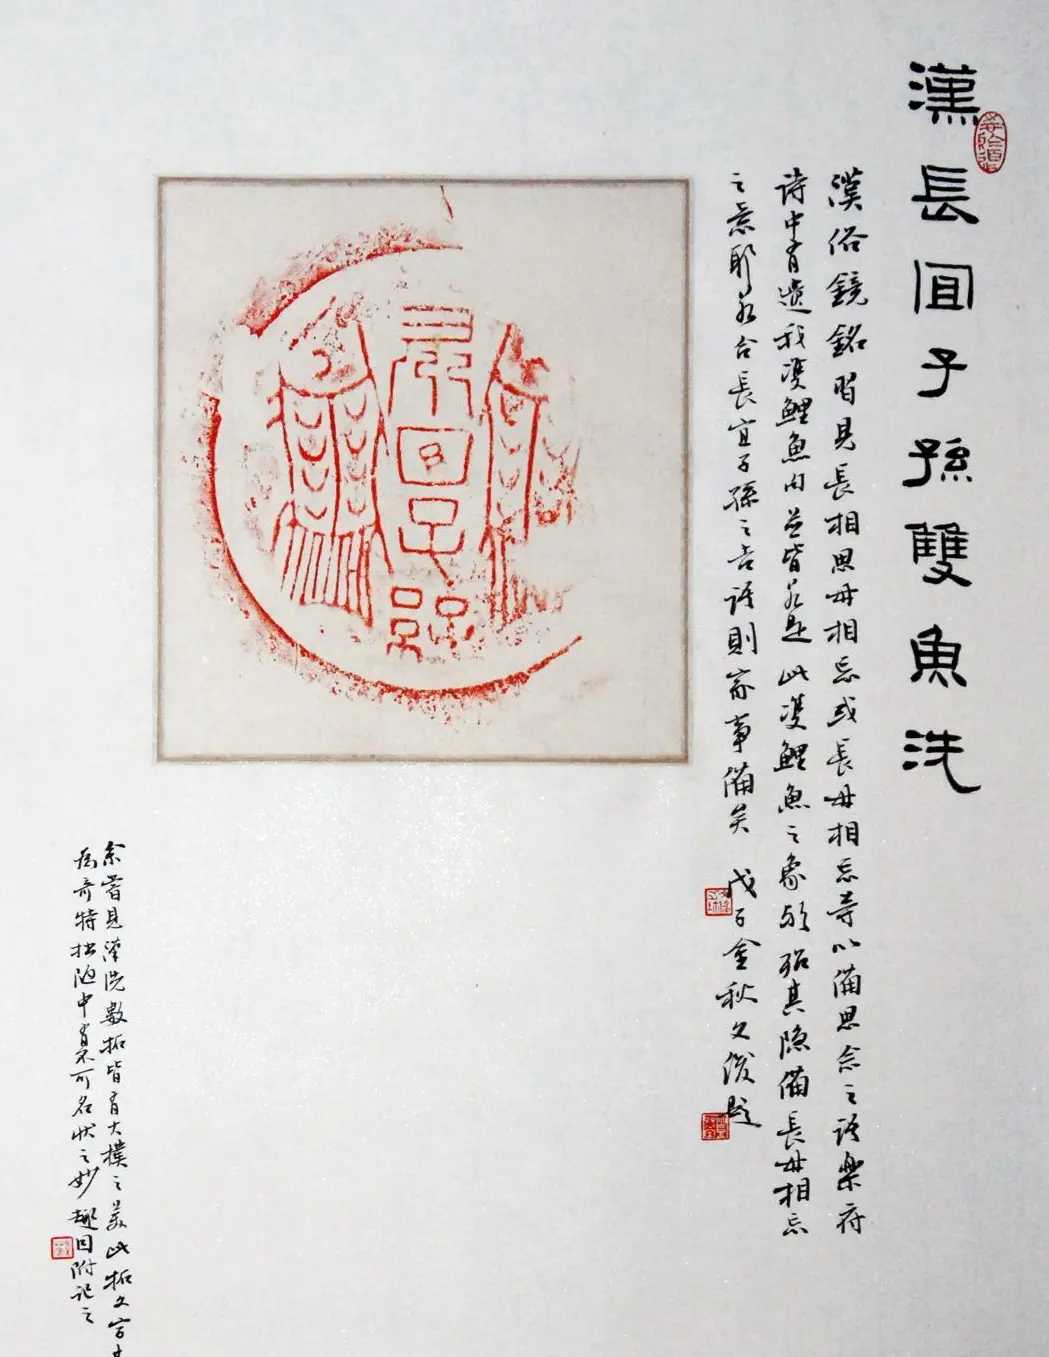 漢長宜子孫雙魚洗
漢俗鏡銘習見長相思毋相忘或長毋相忘等以備思念之語樂府
詩中有遺我雙鯉魚內並皆若是此雙鯉魚之象頗殆其隱備長毋相忘
之意耶若合長宜子孫之吉語則家事備矣 戊子金秋文俊題
長宜子孫
余嘗見漢洗數拓皆有大樸之美此拓文字
為奇特拙陋中有不可名狀之妙趣因附記之